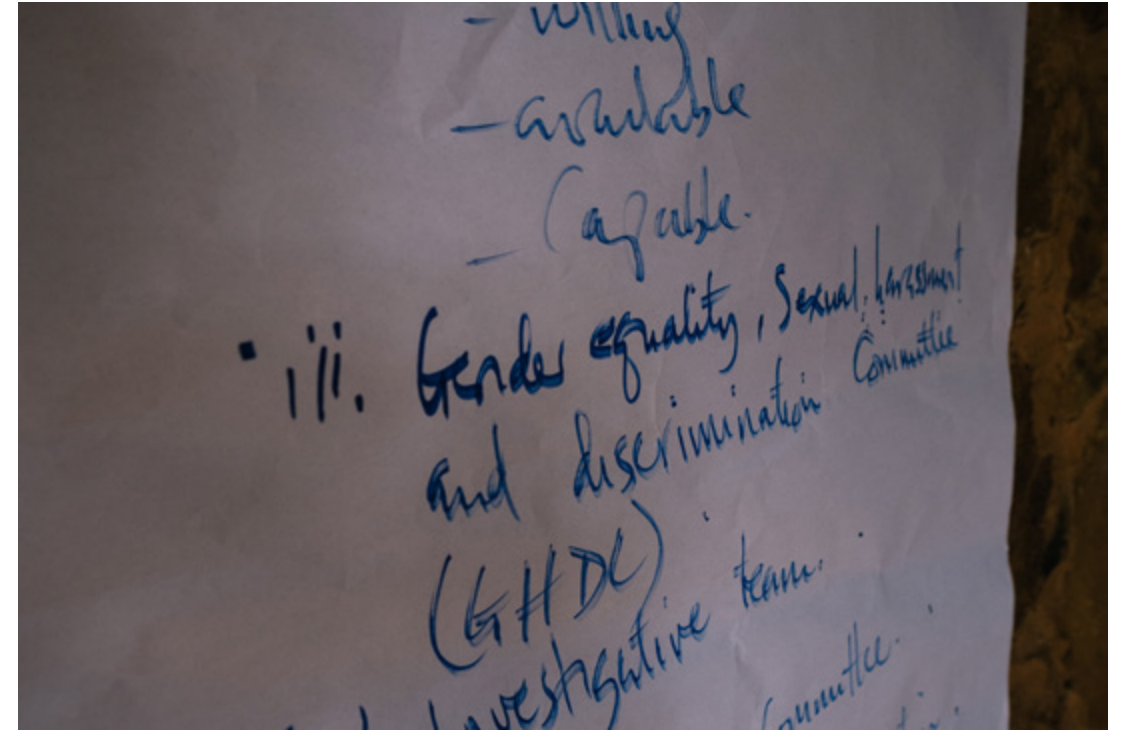 - willing
- available
- Capable.
iii. Gender equality, Sexual harassment
and discrimination Committee
(GHDC)
investigative team.
Committee.